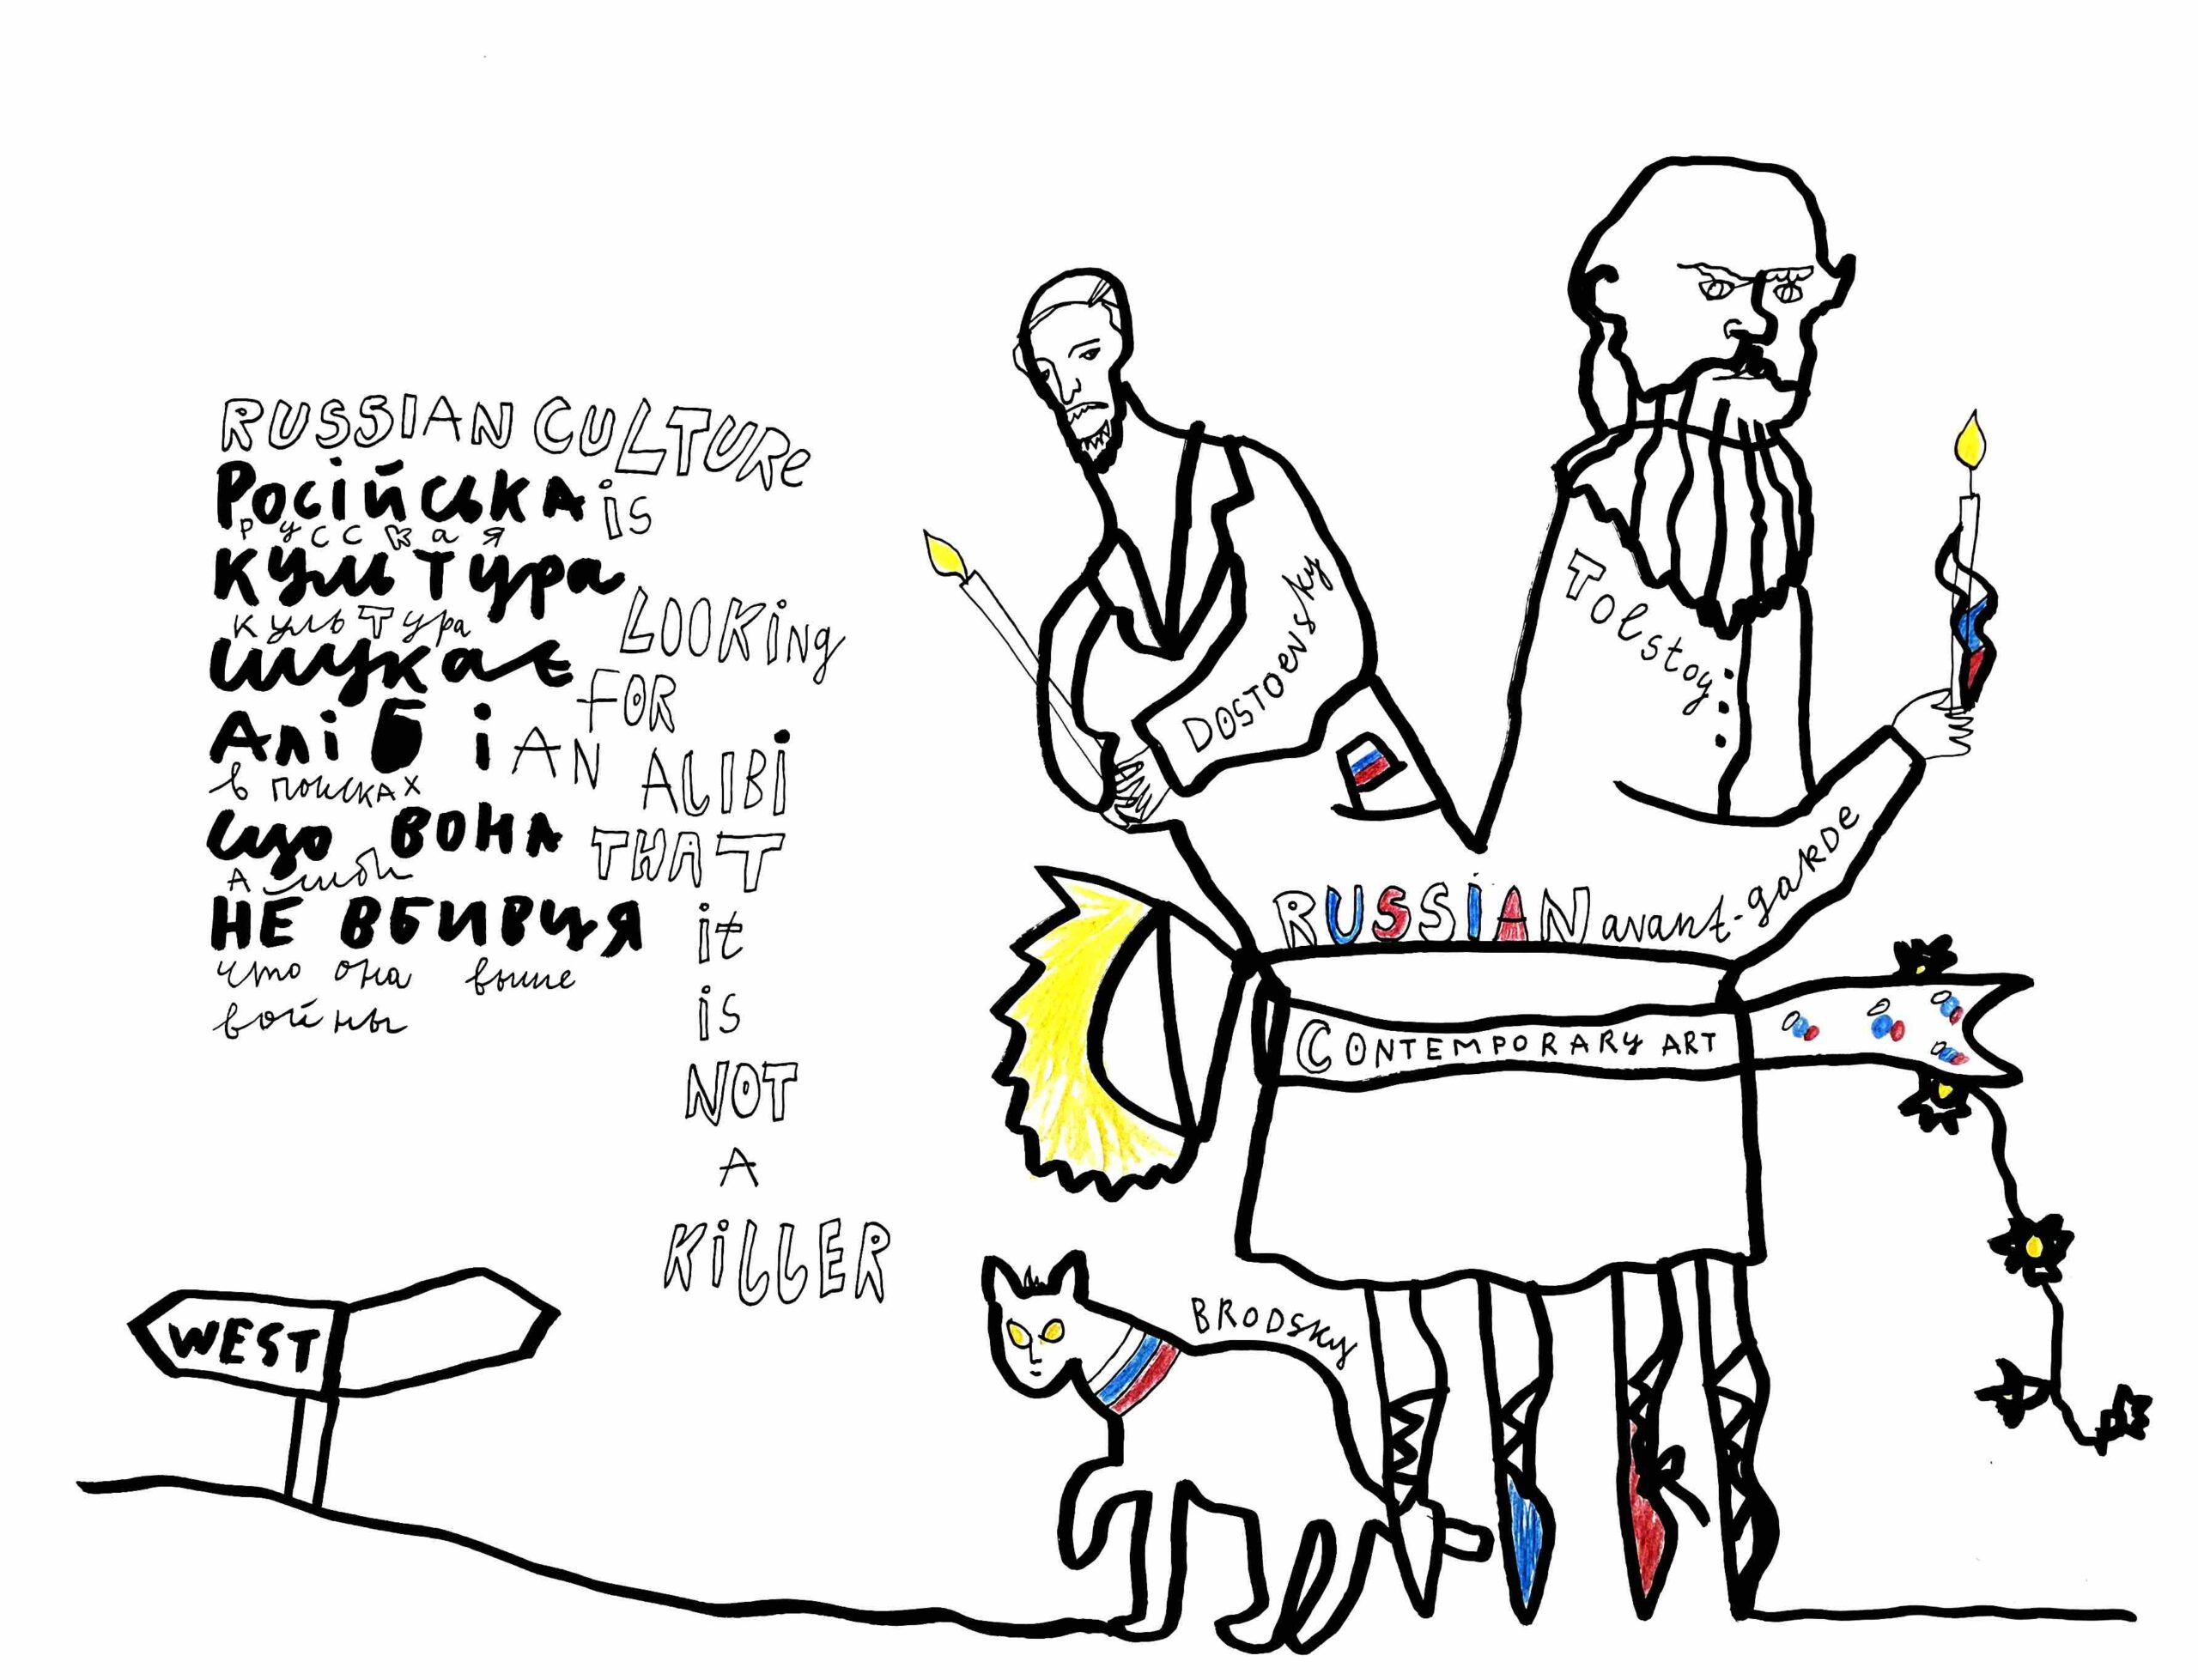 RUSSIAN CULTURE
is
LOOKing
FOR
AN ALIBi
THAT
it
is
NOT
A
KiLLER
Російська
русская
культура
культура
шукає
Алібі
в поисках
що вона
алиби
НЕ ВБИВЦЯ
что она выше
войны
WEST
DOSTOEVSKY
Tolstoy
RUSSiAN avant-garde
CONTEMPORARY ART
BRODSKY